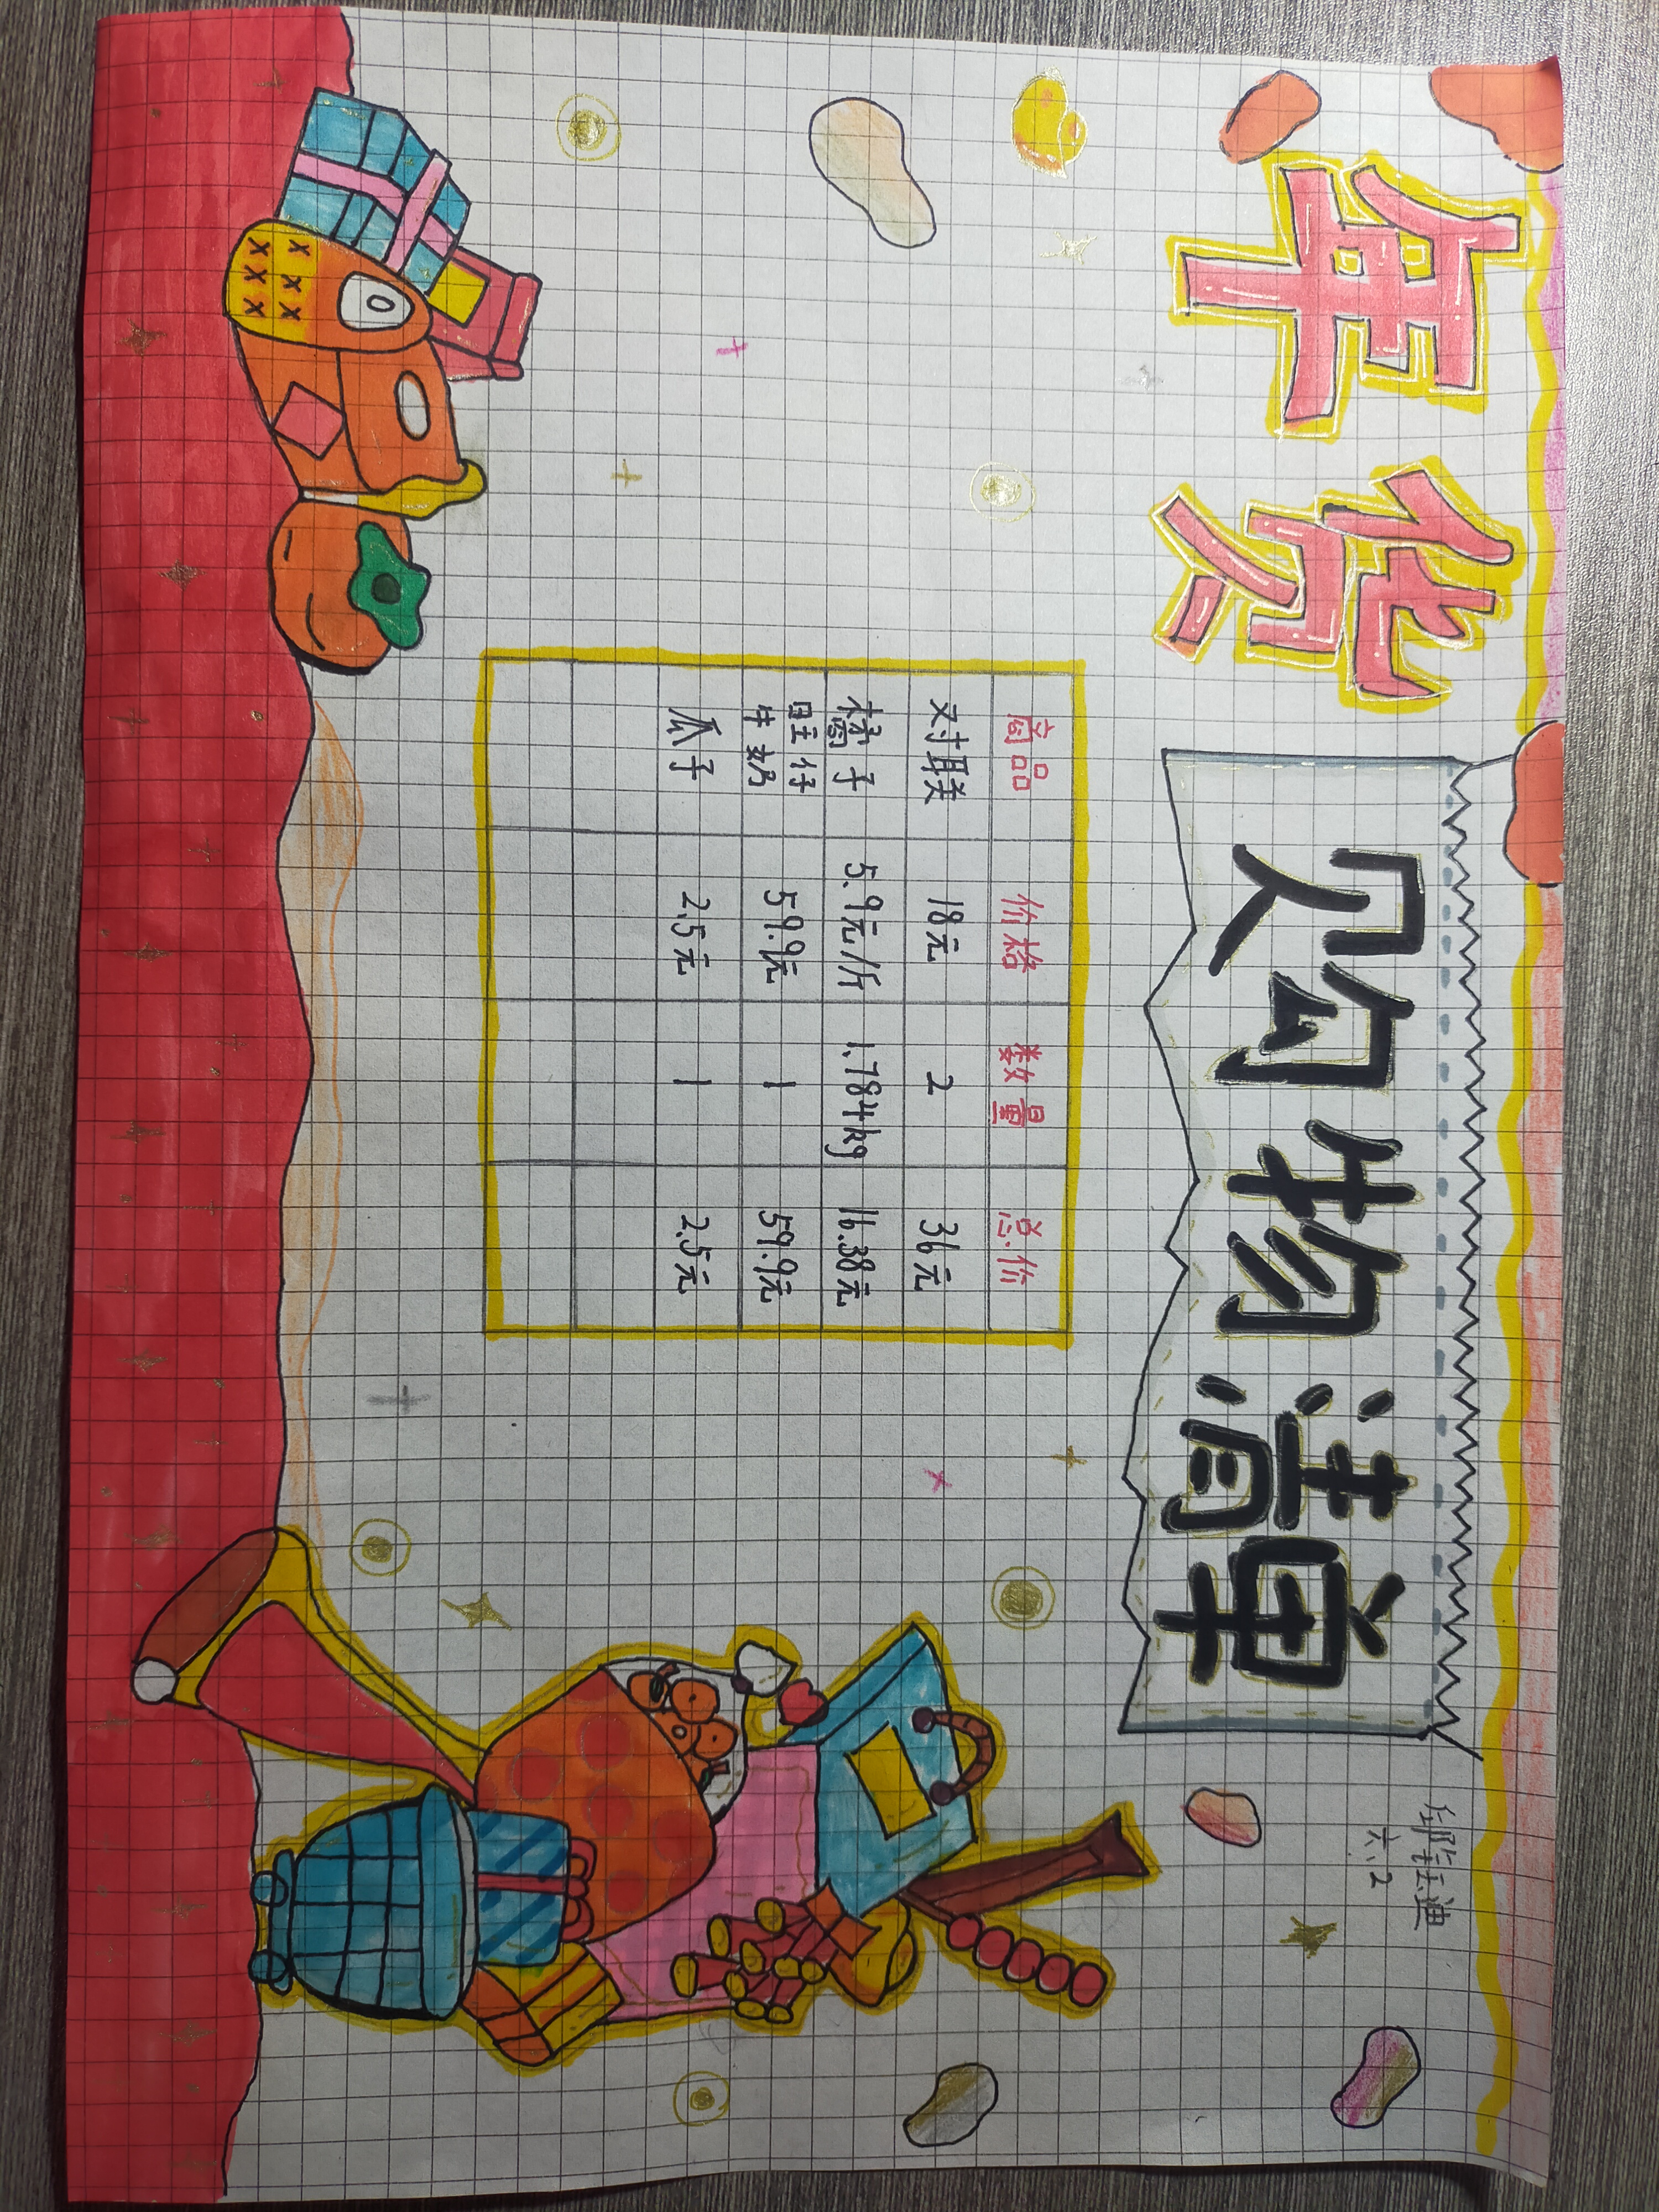 年货
购物清单
六、2
商品 价格 数量 总价
对联 18元 2 36元
橘子 5.9元/斤 1.784kg 16.38元
旺仔牛奶 59.9元 1 59.9元
瓜子 2.5元 1 2.5元